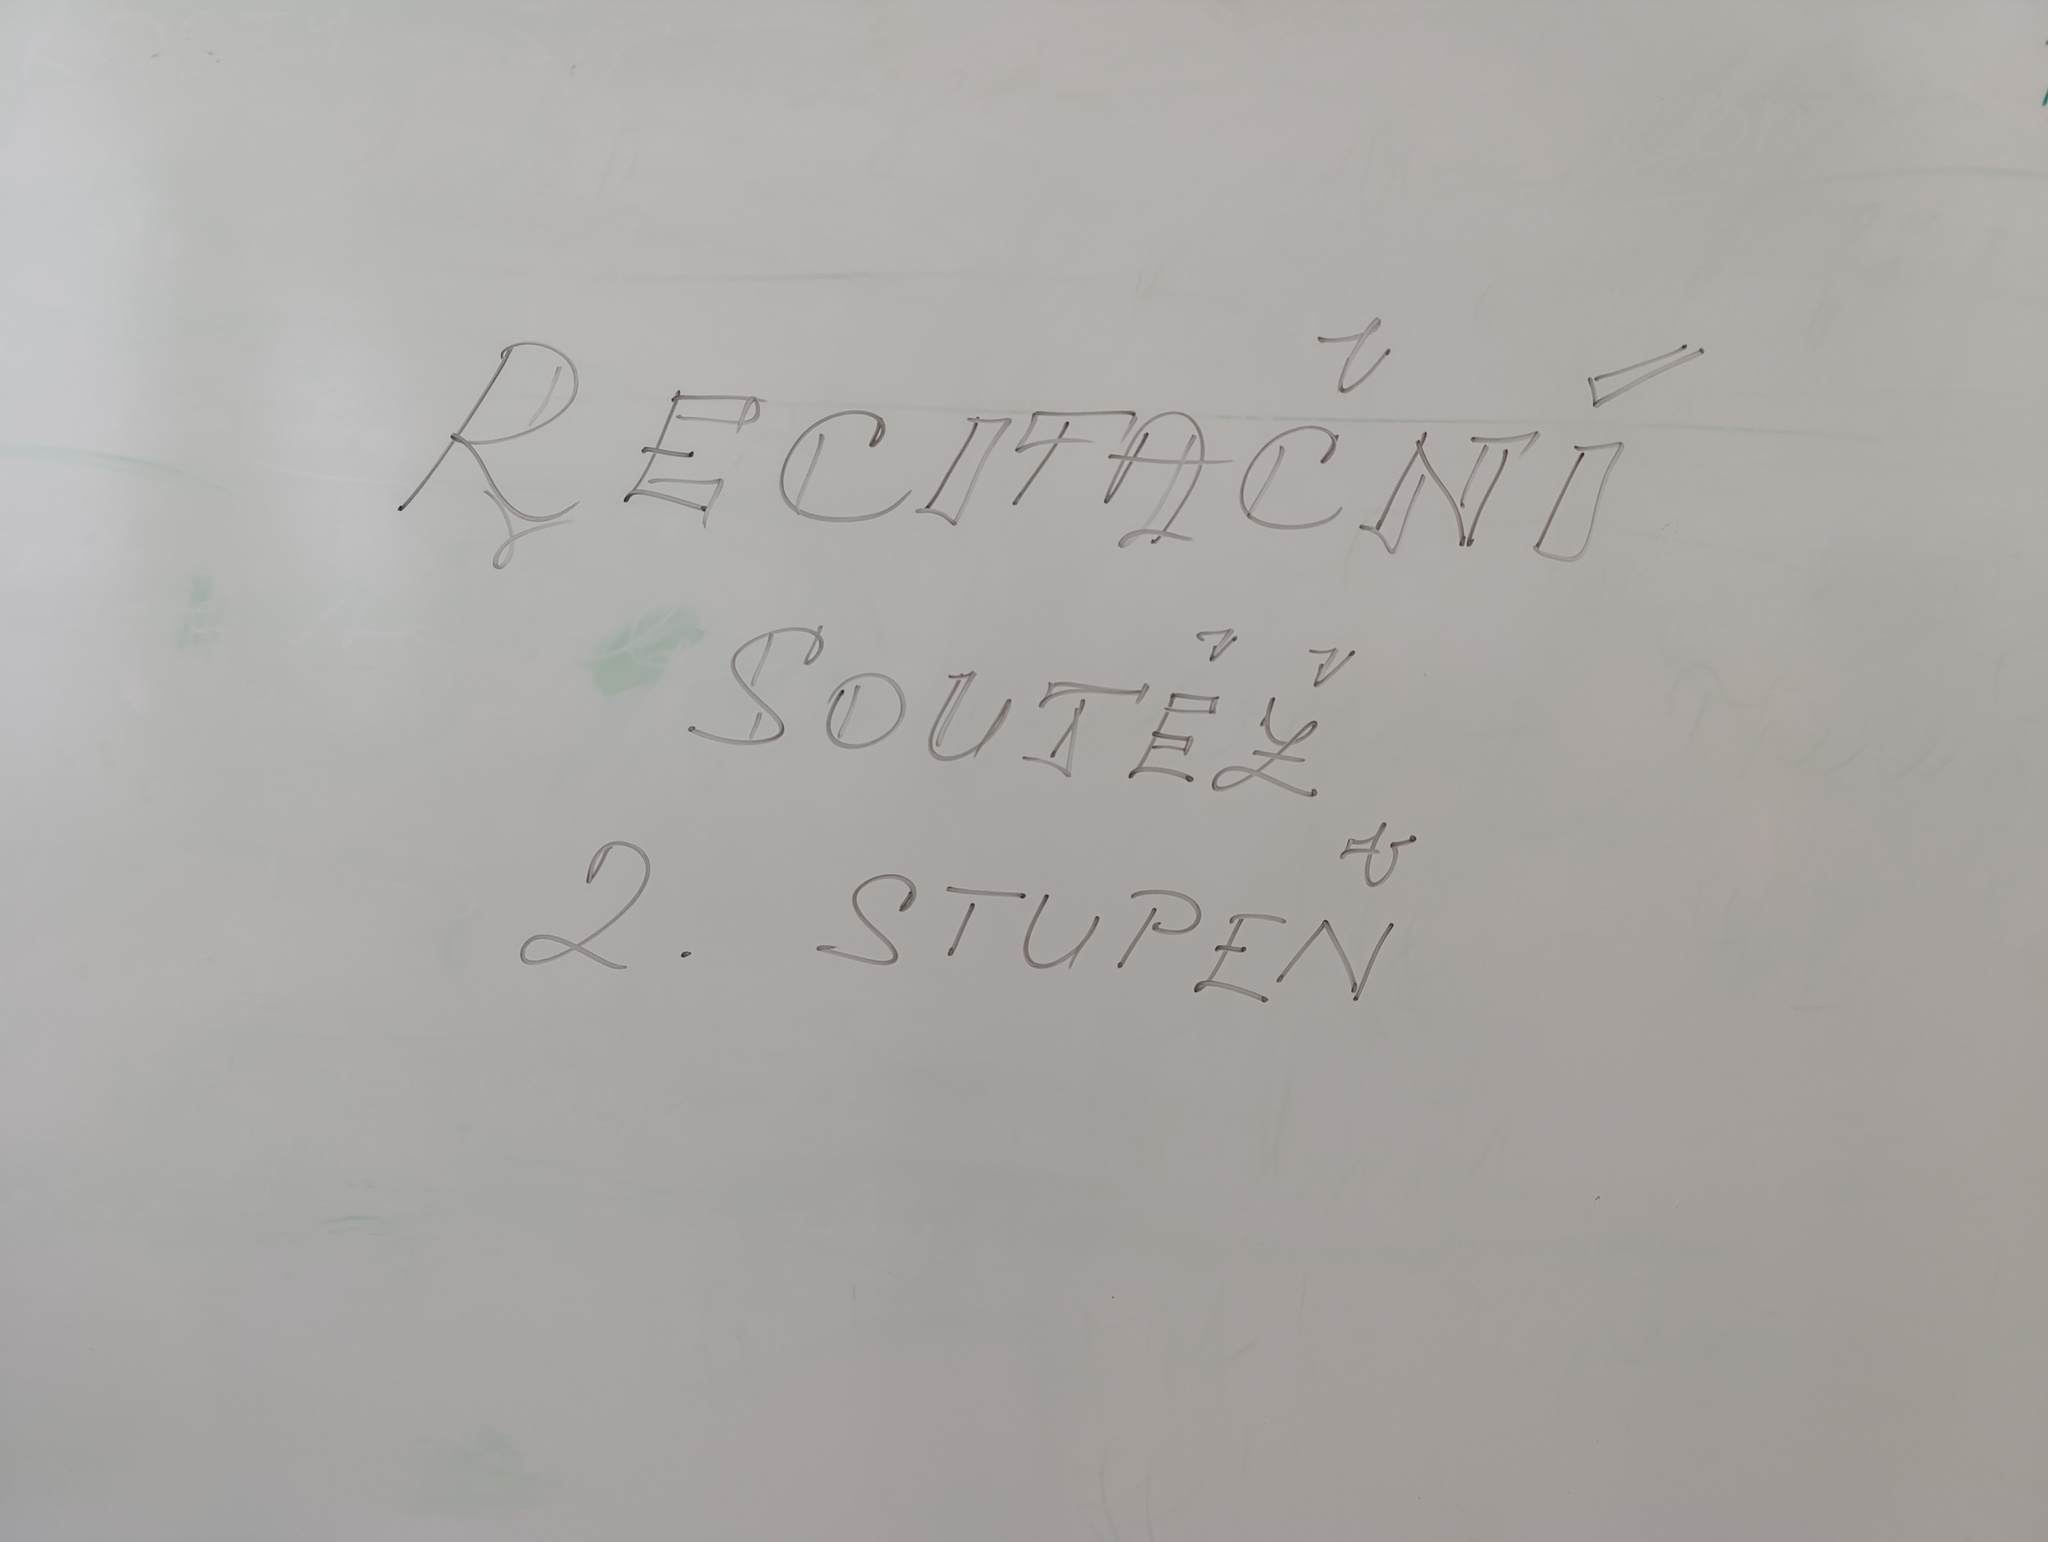 RECITAČNÍ
SOUTĚŽ
2. STUPEŇ